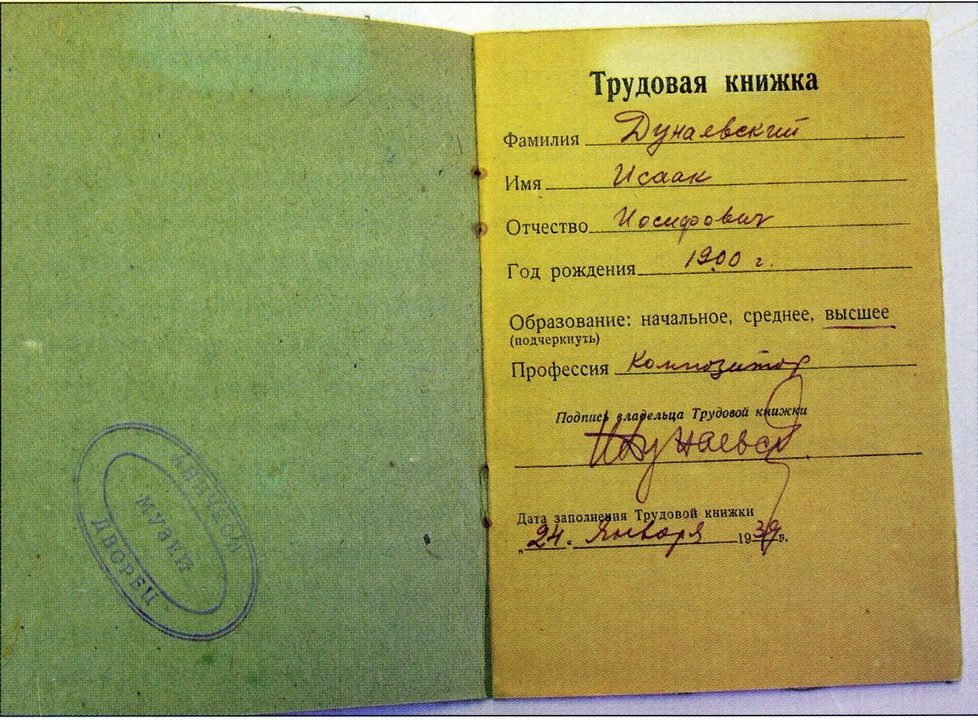 АНИЧКОВ
МУЗЕЙ
ДВОРЕЦ
Трудовая книжка
Фамилия Дунаевский
Имя Исаак
Отчество Иосифович
Год рождения 1900 г.
Образование: начальное, среднее, высшее
(подчеркнуть)
Профессия Композитор
Подпись владельца Трудовой книжки
ИДунаевск
Дата заполнения Трудовой книжки
„24“ Января 1939г.